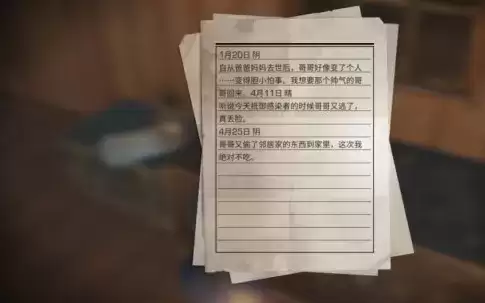 1月20日 阴
自从爸爸妈妈去世后，哥哥好像变了个人
……变得胆小怕事，我想要那个帅气的哥
哥回来。4月11日 晴
听说今天抵御感染者的时候哥哥又逃了，
真丢脸。
4月25日 阴
哥哥又偷了邻居家的东西到家里，这次我
绝对不吃。